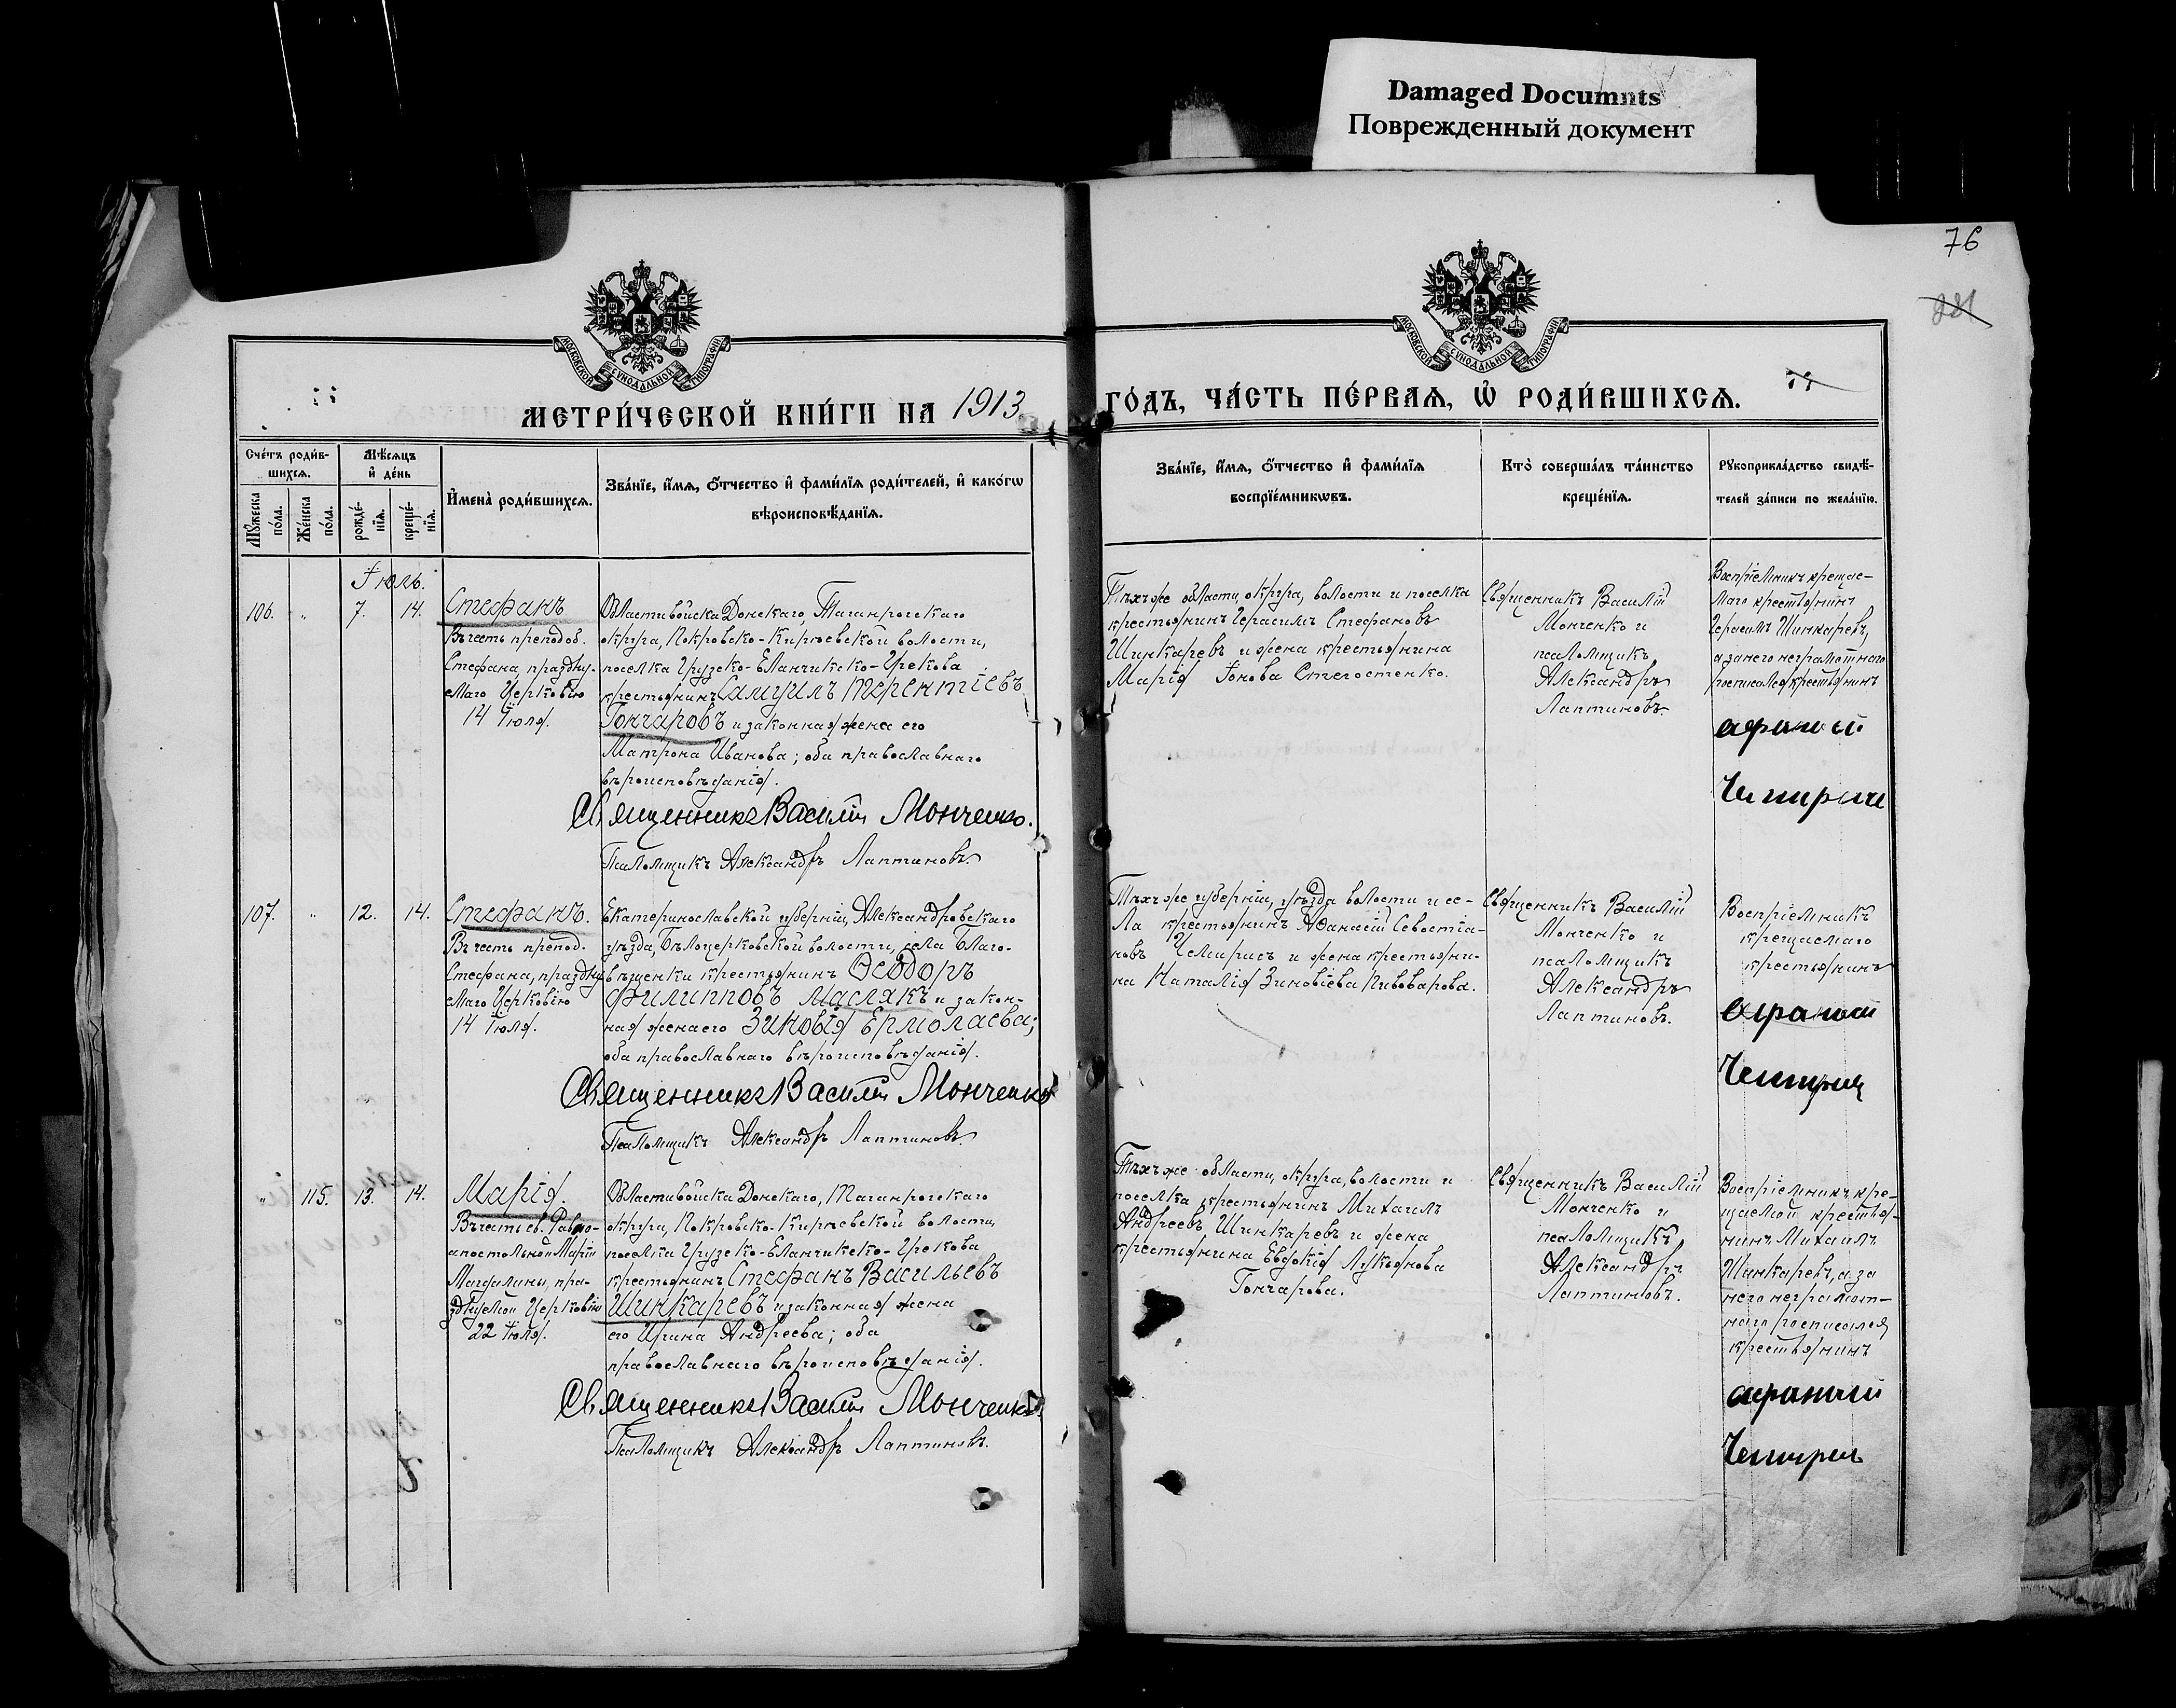 Damaged Documnts
Поврежденный документ
76
МОСКОВСКОЙ СѴНОДАЛЬНОЙ ТИПОГРАФІИ
МОСКОВСКОЙ СѴНОДАЛЬНОЙ ТИПОГРАФІИ
МЕТРИ́ЧЕСКОЙ КНИ́ГИ НА 1913
ГО́ДЪ, ЧА́СТЬ ПЕ́РВАЯ, Ѡ҆ РОДИ́ВШИХСЯ.
Сче́тъ роди́в-
шихся.
Мꙋжеска по́ла.
Же́нска по́ла.
Мѣ́сяцъ
и҆ де́нь
рожде́-
нїя.
креще́-
нїя.
И҆мена̀ роди́вшихся.
Зва́нїе, и҆́мя, ѻ҆́тчество и҆ фами́лїя роди́телей, и҆ како́гѡ
вѣроисповѣ́данїя.
Зва́нїе, и҆́мя, ѻ҆́тчество и҆ фами́лїя
воспрїе́мникѡвъ.
Кто̀ соверша́лъ та́инство
креще́нїя.
Рꙋкоприкла́дство свидѣ́-
телей за́писи по жела́нїю.
Іюль.
106. " 7. 14.
Стефанъ
Въ честь преподоб.
Стефана, праздну-
емаго Церковію
14 Іюля.
Области войска Донскаго, Таганрогскаго
округа, Покровско-Кирѣевской волости,
поселка Грузско-Еланчикско-Грекова
крестьянинъ Самуилъ Терентіевъ
Гончаровъ и законная жена его
Матрона Иванова; оба православнаго
вѣроисповѣданія.
Священникъ Василій Монченко.
Псаломщикъ Александръ Лаптиновъ.
Тѣхъ же области, округа, волости и поселка
крестьянинъ Герасимъ Стефановъ
Шинкаревъ и жена крестьянина
Марія Іонова Стегостенко.
Священникъ Василій
Монченко и
псаломщикъ
Александръ
Лаптиновъ.
Воспріемникъ крещае-
маго крестьянинъ
Герасимъ Шинкаревъ,
а за него неграмотнаго
росписался крестьянинъ
107. " 12. 14.
Стефанъ.
Въ честь препод.
Стефана, праздну
емаго Церковію
14 Іюля.
Екатеринославской губерніи, Александровскаго
уѣзда, Бѣлоцерковской волости, села Благо-
вѣщенки крестьянинъ Ѳеодоръ
Филипповъ Маслякъ и закон-
ная жена его Зиновія Ермолаева;
оба православнаго вѣроисповѣданія.
Священникъ Василій Монченко
Псаломщикъ Александръ Лаптиновъ.
Тѣхъ же губерніи, уѣзда волости и се-
ла крестьянинъ Афанасій Севостіа-
новъ Чемирисъ и жена крестьяни-
на Наталія Зиновіева Пивоварова.
Священникъ Василій
Монченко и
псаломщикъ
Александръ
Лаптиновъ.
Воспріемникъ
крещаемаго
крестьянинъ
" 115. 13. 14.
Марія.
Въ честь св. Равно-
апостольной Маріи
Магдалины, пра-
зднуемой Церковію
22 Іюля.
Области войска Донскаго, Таганрогскаго
округа, Покровско-Кирѣевской волости,
поселка Грузско-Еланчикско-Грекова
крестьянинъ Стефанъ Васильевъ
Шинкаревъ и законная жена
его Ирина Андреева; оба
православнаго вѣроисповѣданія.
Священникъ Василій Монченко
Псаломщикъ Александръ Лаптиновъ.
Тѣхъ же области, округа, волости и
поселка крестьянинъ Михаилъ
Андреевъ Шинкаревъ и жена
крестьянина Евдокія Лукьянова
Гончарова.
Священникъ Василій
Монченко и
псаломщикъ
Александръ
Лаптиновъ.
Воспріемникъ кре-
щаемой крестья-
нинъ Михаилъ
Шинкаревъ, а за
него неграмот-
наго росписался
крестьянинъ